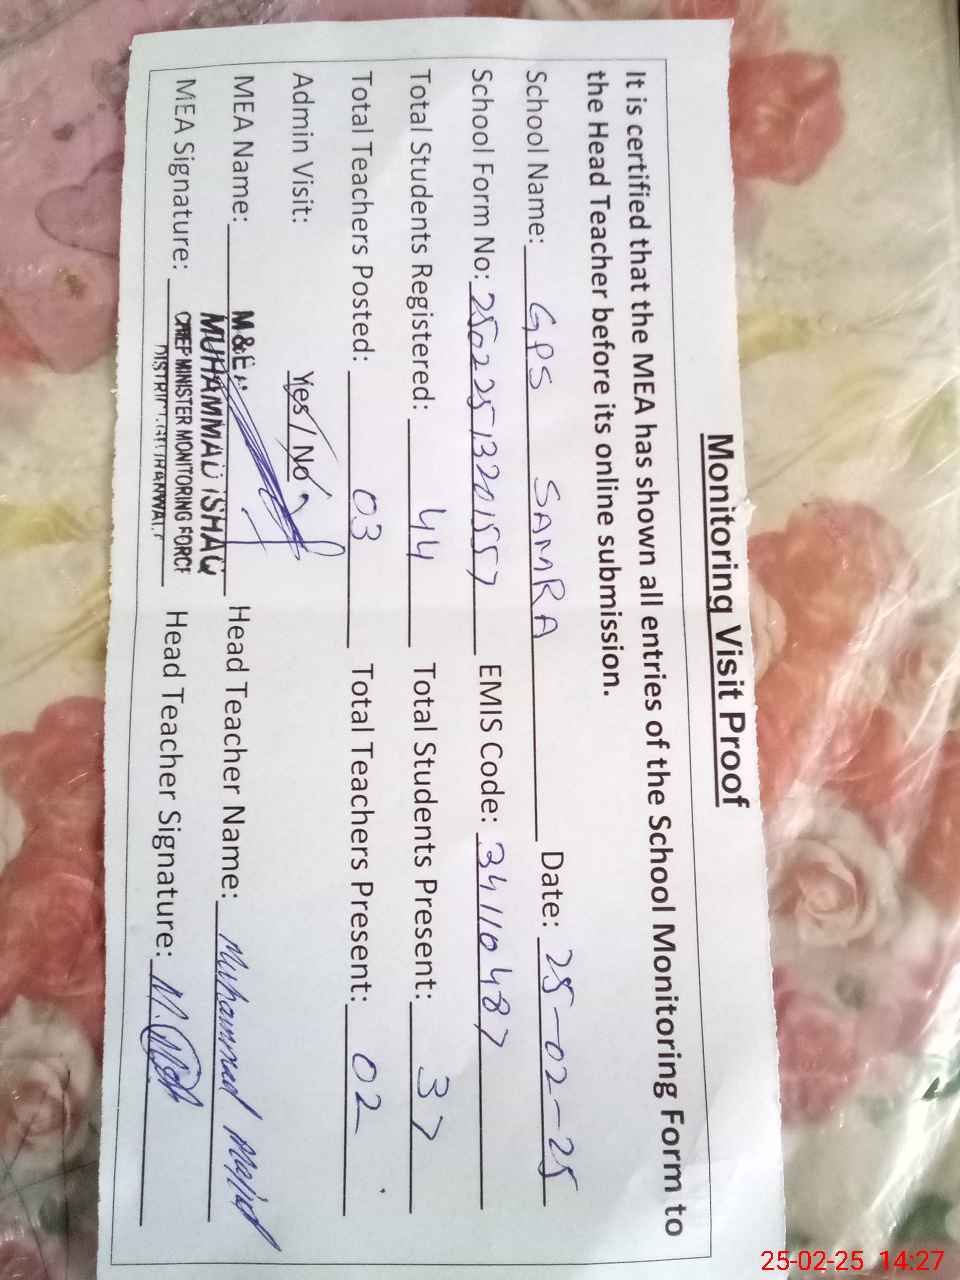 Monitoring Visit Proof
It is certified that the MEA has shown all entries of the School Monitoring Form to
the Head Teacher before its online submission.
School Name: GPS SAMRA Date: 25-02-25
School Form No: 25022513201557 EMIS Code: 34110487
Total Students Registered: 44 Total Students Present: 37
Total Teachers Posted: 03 Total Teachers Present: 02
Admin Visit: Yes / No
MEA Name: M&E: MUHAMMAD ISHAQ Head Teacher Name: Muhammad Majid
MEA Signature: CHIEF MINISTER MONITORING FORCE Head Teacher Signature:
DISTRICT GUJRANWALA
25-02-25 14:27